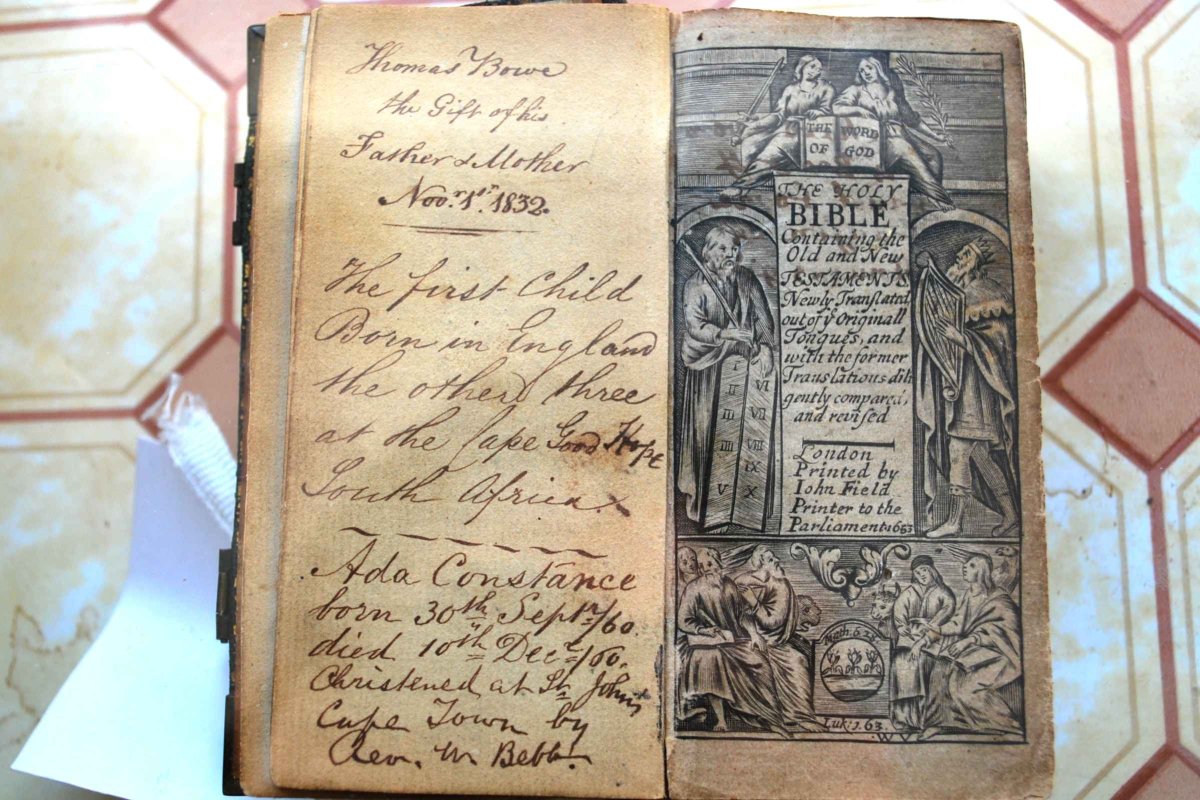 Thomas Bowe
the Gift of his
Father & Mother
Novr. 1st. 1832.
The first Child
Born in England
the others three
at the Cape Good Hope
South Africa
Ada Constance
born 30th Septr/60.
died 10th Decr/60.
Christened at St Johns
Cape Town by
Rev. Mr Bebb.
THE WORD
OF GOD
THE HOLY
BIBLE
Containing the
Old and New
TESTAMENTS
Newly Translated
out of ye Originall
Tongues, and
with the former
Translations dili
gently compared,
and revised
London
Printed by
Iohn Field
Printer to the
Parliament 1653
I
II
III
IIII
V
VI
VII
VIII
IX
X
Math: 6. 28
Luk: 1. 63.